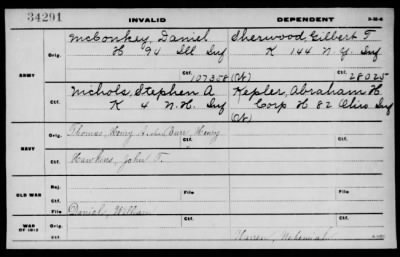 34291 INVALID DEPENDENT 3-MI-B
ARMY
Orig. McConkey, Daniel Sherwood, Gilbert T
H 94 Ill Inf K 144 N.Y. Inf
Ctf. 107358 (Ct) Ctf. 28025
Ctf. Nichols, Stephen A Kepler, Abraham H
K 4 N.H. Inf Corp H 82 Ohio Inf
(Ct)
NAVY
Orig. Thomas, Henry Henry
Ctf. Hawkins, John T.
OLD WAR
Rej. File File
Ctf. Daniel, William
WAR OF 1812
Orig. Ctf. Ctf.
Ctf.